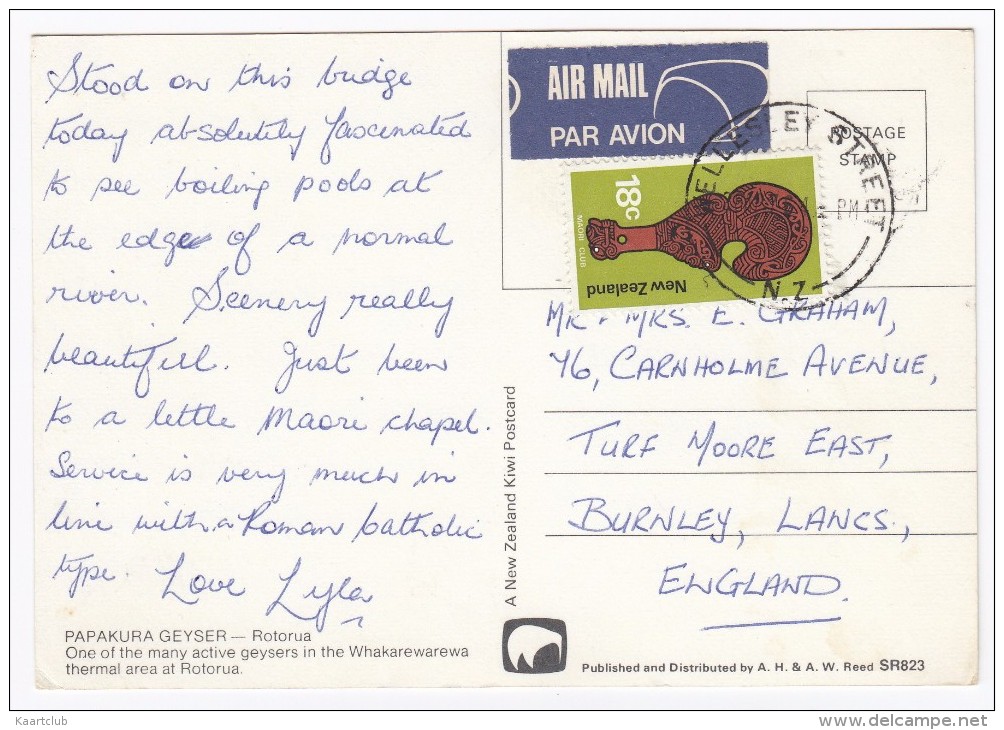 Stood on this bridge
today absolutely fascinated
to see boiling pools at
the edge of a normal
river. Scenery really
beautiful. Just been
to a little Maori chapel.
Service is very much in
line with a Roman Catholic
type. Love Lyla
PAPAKURA GEYSER — Rotorua
One of the many active geysers in the Whakarewarewa
thermal area at Rotorua.
A New Zealand Kiwi Postcard
AIR MAIL
PAR AVION
POSTAGE
STAMP
WELLESLEY STREET
PM
N.Z.
18c
MAORI CLUB
New Zealand
MR + MRS. E. GRAHAM,
46, CARNHOLME AVENUE,
TURF MOORE EAST,
BURNLEY, LANCS.,
ENGLAND.
Published and Distributed by A. H. & A. W. Reed SR823
Kaartclub
delcampe.net